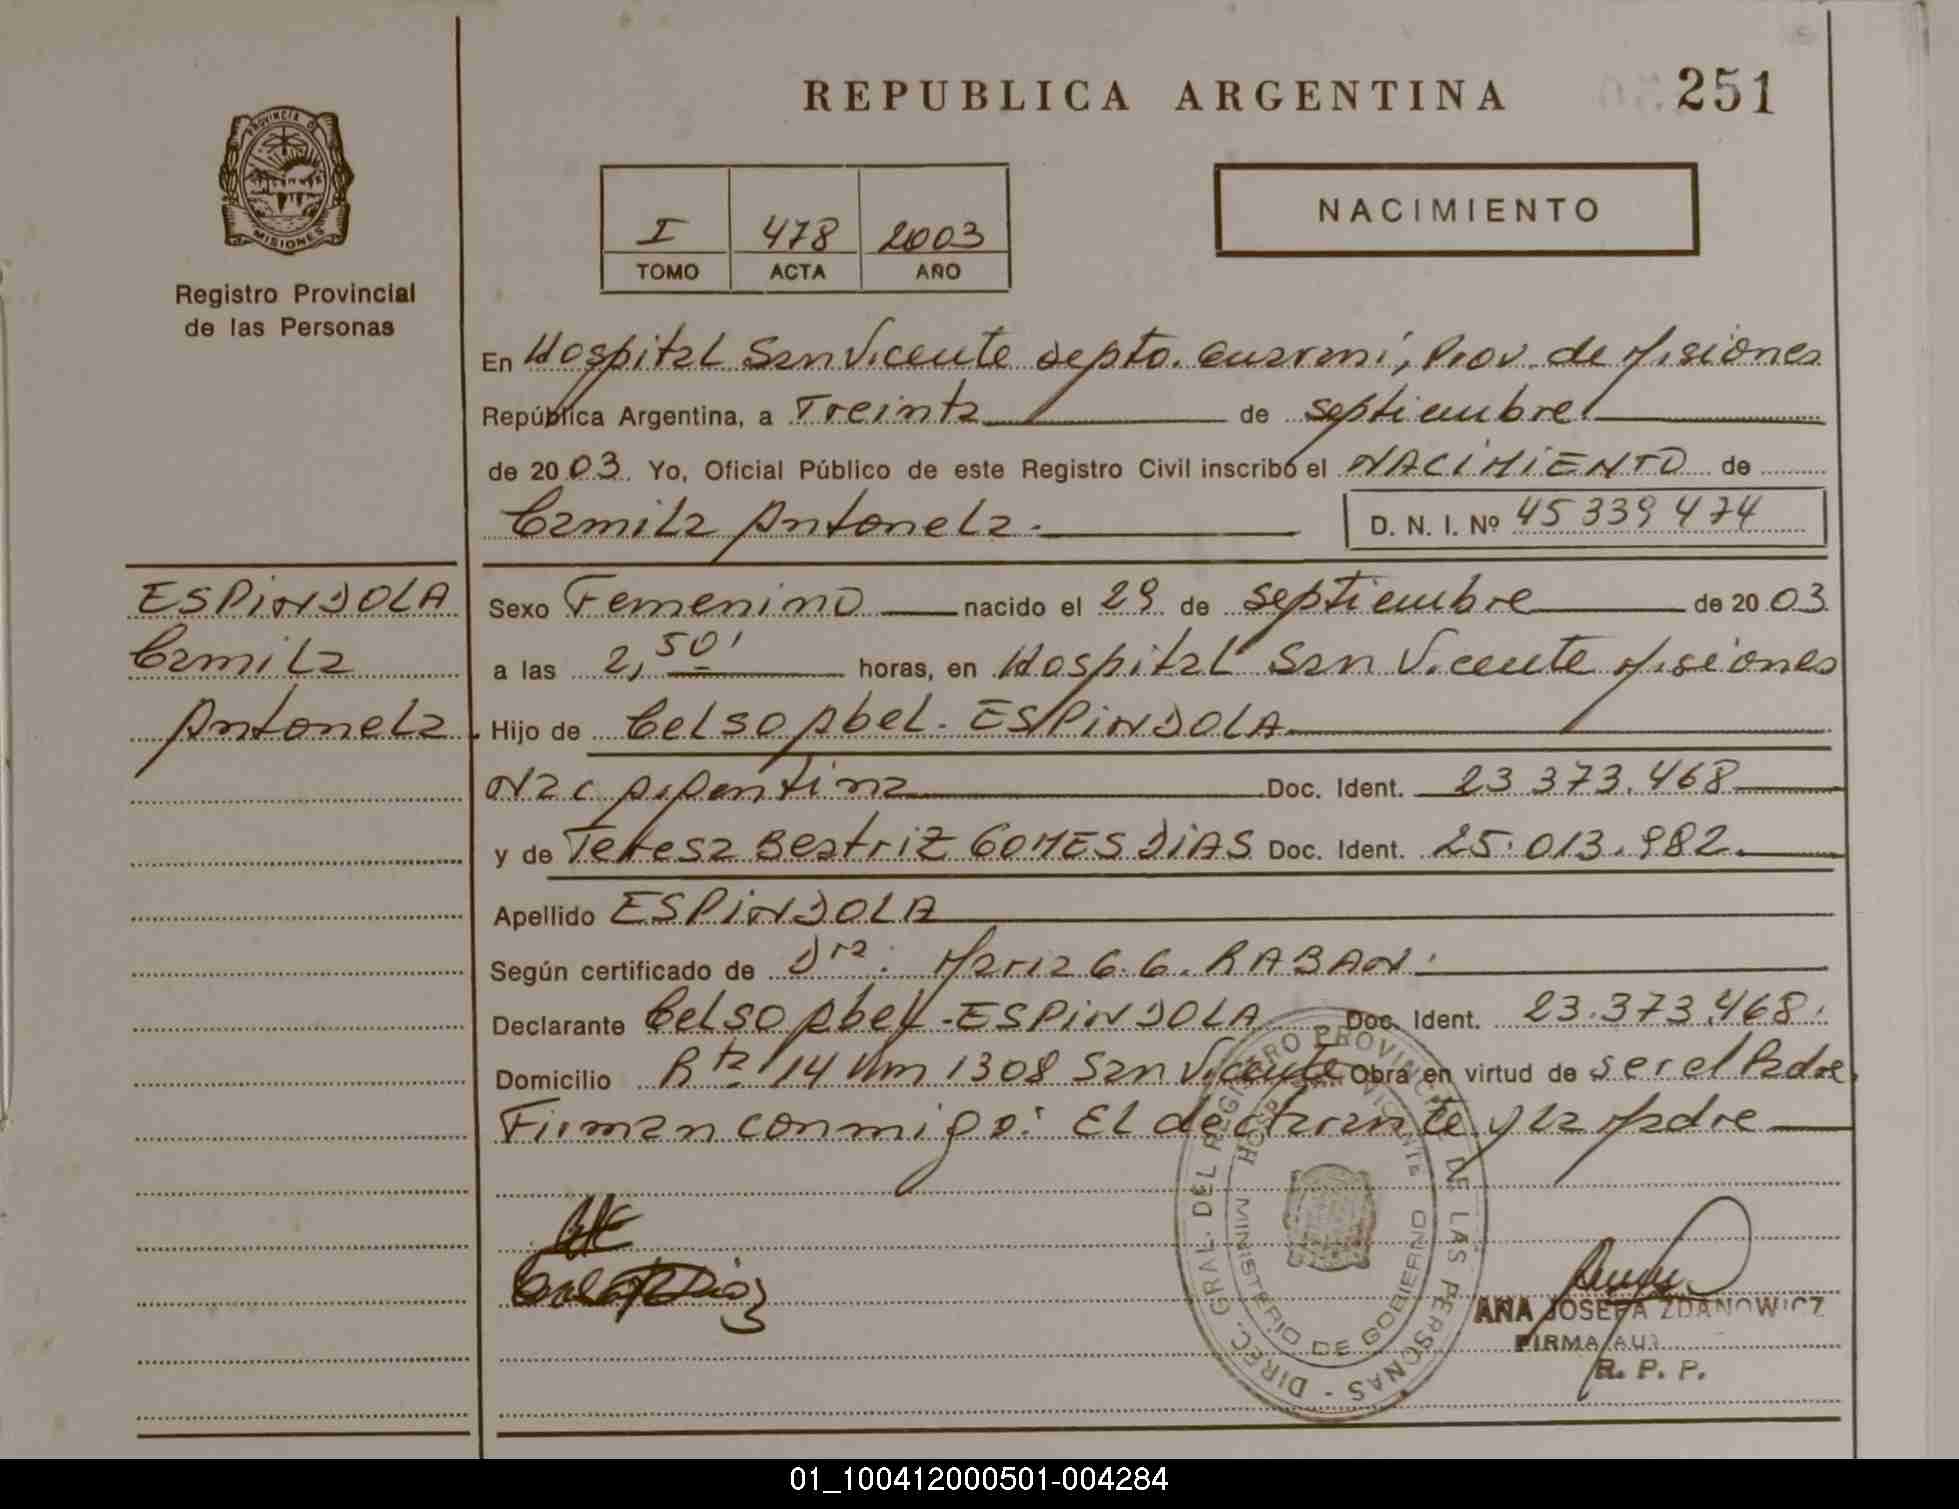 REPUBLICA ARGENTINA 251
PROVINCIA DE
MISIONES
Registro Provincial
de las Personas
I 478 2003
TOMO ACTA AÑO
NACIMIENTO
En Hospital San Vicente depto. Guarani, Prov. de Misiones
República Argentina, a Treinta de septiembre
de 2003. Yo, Oficial Público de este Registro Civil inscribo el NACIMIENTO de
Camila Antonela. D. N. I. Nº 45 339 474
ESPINDOLA
Camila
Antonela
Sexo Femenino nacido el 29 de septiembre de 2003
a las 2,50' horas, en Hospital San Vicente Misiones
Hijo de Celso Abel - ESPINDOLA
Nac Argentina Doc. Ident. 23 373.468
y de Teresa Beatriz GOMES DIAS Doc. Ident. 25.013.982.
Apellido ESPINDOLA
Según certificado de Dra. Maria G. G. RABAN.
Declarante Celso Abel - ESPINDOLA Doc. Ident. 23.373.468.
Domicilio Rta 14 Km 1308 San Vicente Obra en virtud de ser el Padre,
Firman conmigo: El declarante y la Madre
DIREC. GRAL. DEL REGISTRO PROVINCIAL DE LAS PERSONAS -
MINISTERIO DE GOBIERNO
ANA JOSEFA ZDANOWICZ
FIRMA AUT.
R. P. P.
01_100412000501-004284